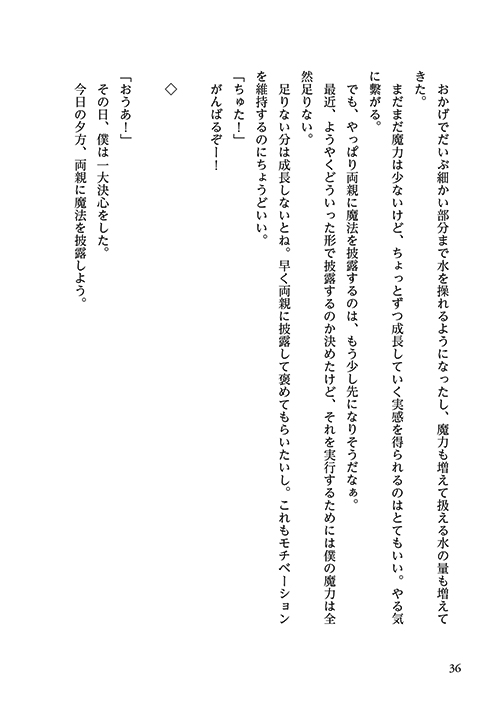 おかげでだいぶ細かい部分まで水を操れるようになったし、魔力も増えて扱える水の量も増えて
きた。
まだまだ魔力は少ないけど、ちょっとずつ成長していく実感を得られるのはとてもいい。やる気
に繋がる。
でも、やっぱり両親に魔法を披露するのは、もう少し先になりそうだなぁ。
最近、ようやくどういった形で披露するのか決めたけど、それを実行するためには僕の魔力は全
然足りない。
足りない分は成長しないとね。早く両親に披露して褒めてもらいたいし。これもモチベーション
を維持するのにちょうどいい。
「ちゅた！」
がんばるぞー！
◇
「おうあ！」
その日、僕は一大決心をした。
今日の夕方、両親に魔法を披露しよう。
36